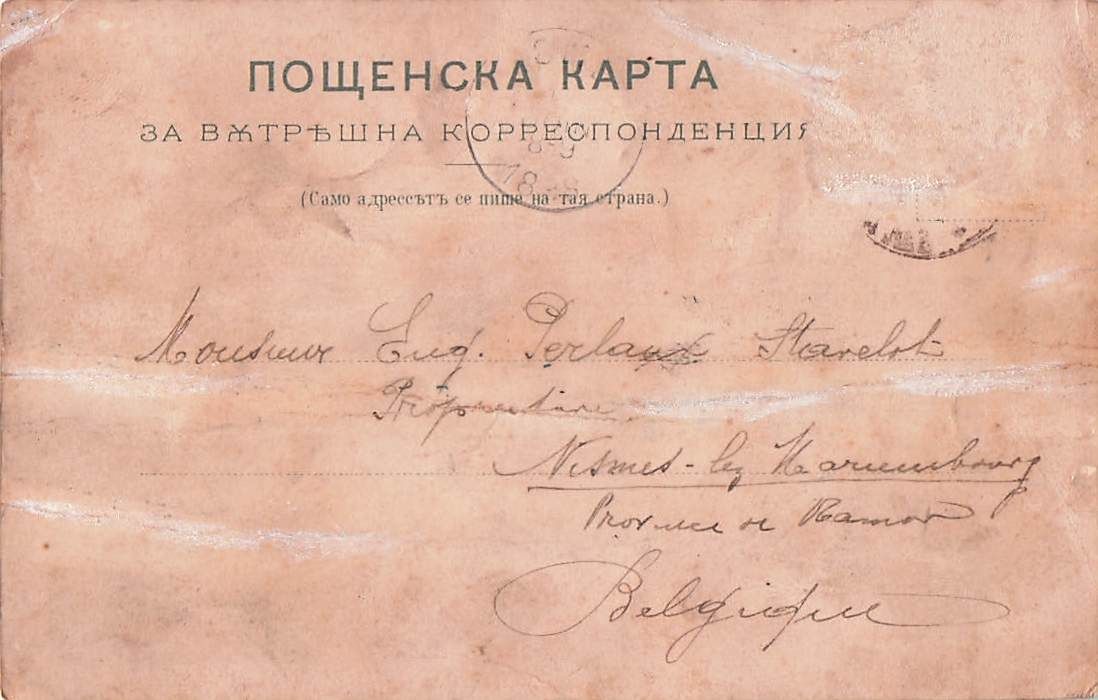 ПОЩЕНСКА КАРТА
ЗА ВѪТРѢШНА КОРРЕСПОНДЕНЦИЯ
(Само адрессътъ се пише на тая страна.)
Monsieur Eug. Perlaux Stavelot
Propriétaire
Nismes-lez Mariembourg
Province de Namur
Belgique